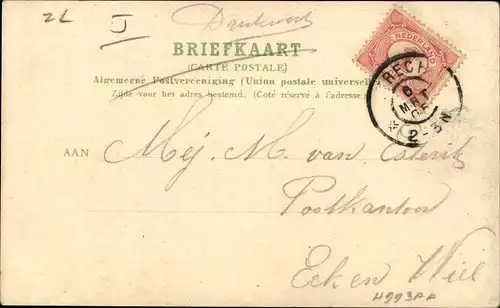 ZL
I
Drukwerk
BRIEFKAART
(CARTE POSTALE)
Algemeene Postvereeniging (Union postale universelle)
Zijde voor het adres bestemd. (Côté réservé à l'adresse.)
NEDERLAND
6
MRT
2-3N
AAN
Mej. M. van
Postkantoor
Eck en Wiel